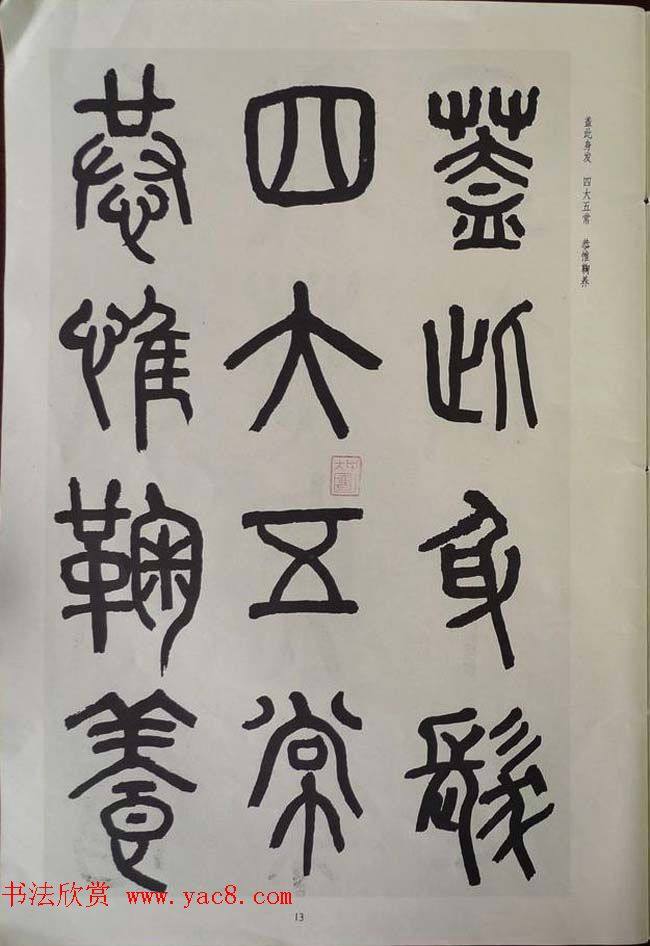 蓋此身髮
四大五常
恭惟鞠養
盖此身发 四大五常 恭惟鞠养
13
书法欣赏 www.yac8.com